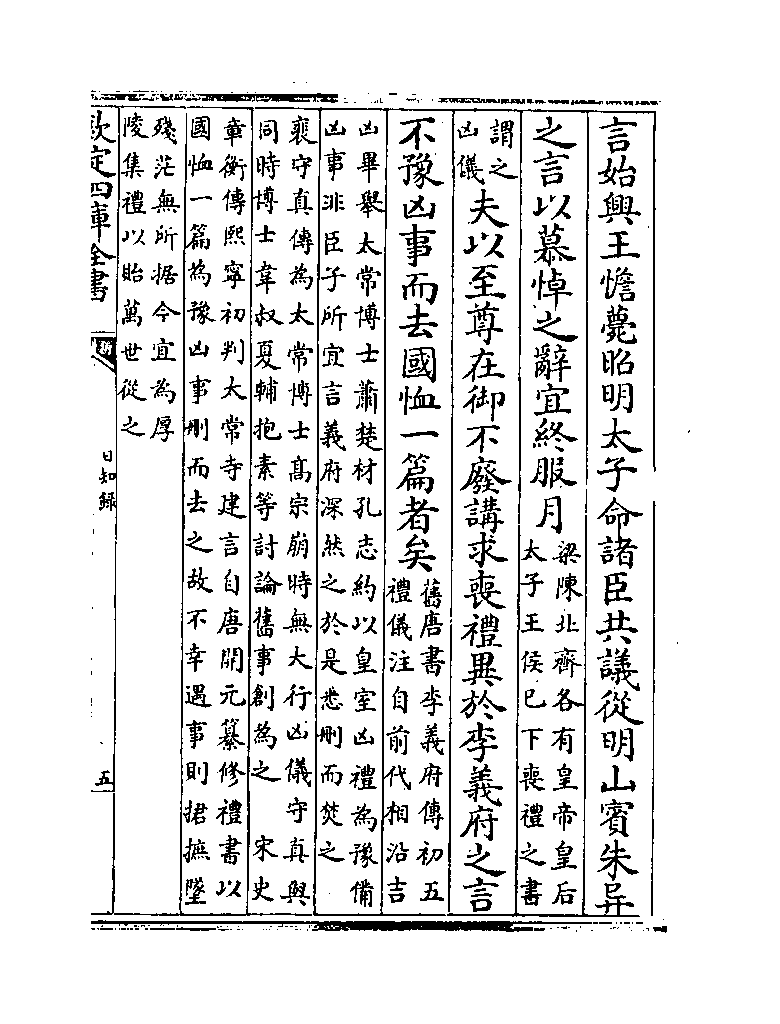 言始興王憺薨昭明太子命諸臣共議從明山賓朱异
之言以慕悼之辭宜終服月
梁陳北齊各有皇帝皇后
太子王侯已下喪禮之書
謂之
凶儀
夫以至尊在御不廢講求喪禮異於李義府之言
不豫凶事而去國恤一篇者矣
舊唐書李義府傳初五
禮儀注自前代相沿吉
凶畢舉太常博士蕭楚材孔志約以皇室凶禮為豫備
凶事非臣子所宜言義府深然之於是悉刪而焚之
裴守真傳為太常博士髙宗崩時無大行凶儀守真與
同時博士韋叔夏輔抱素等討論舊事創為之 宋史
章衡傳熙寧初判太常寺建言自唐開元纂修禮書以
國恤一篇為豫凶事刪而去之故不幸遇事則捃摭墜
殘茫無所据今宜為厚
陵集禮以貽萬世從之
欽定四庫全書
日知録
五